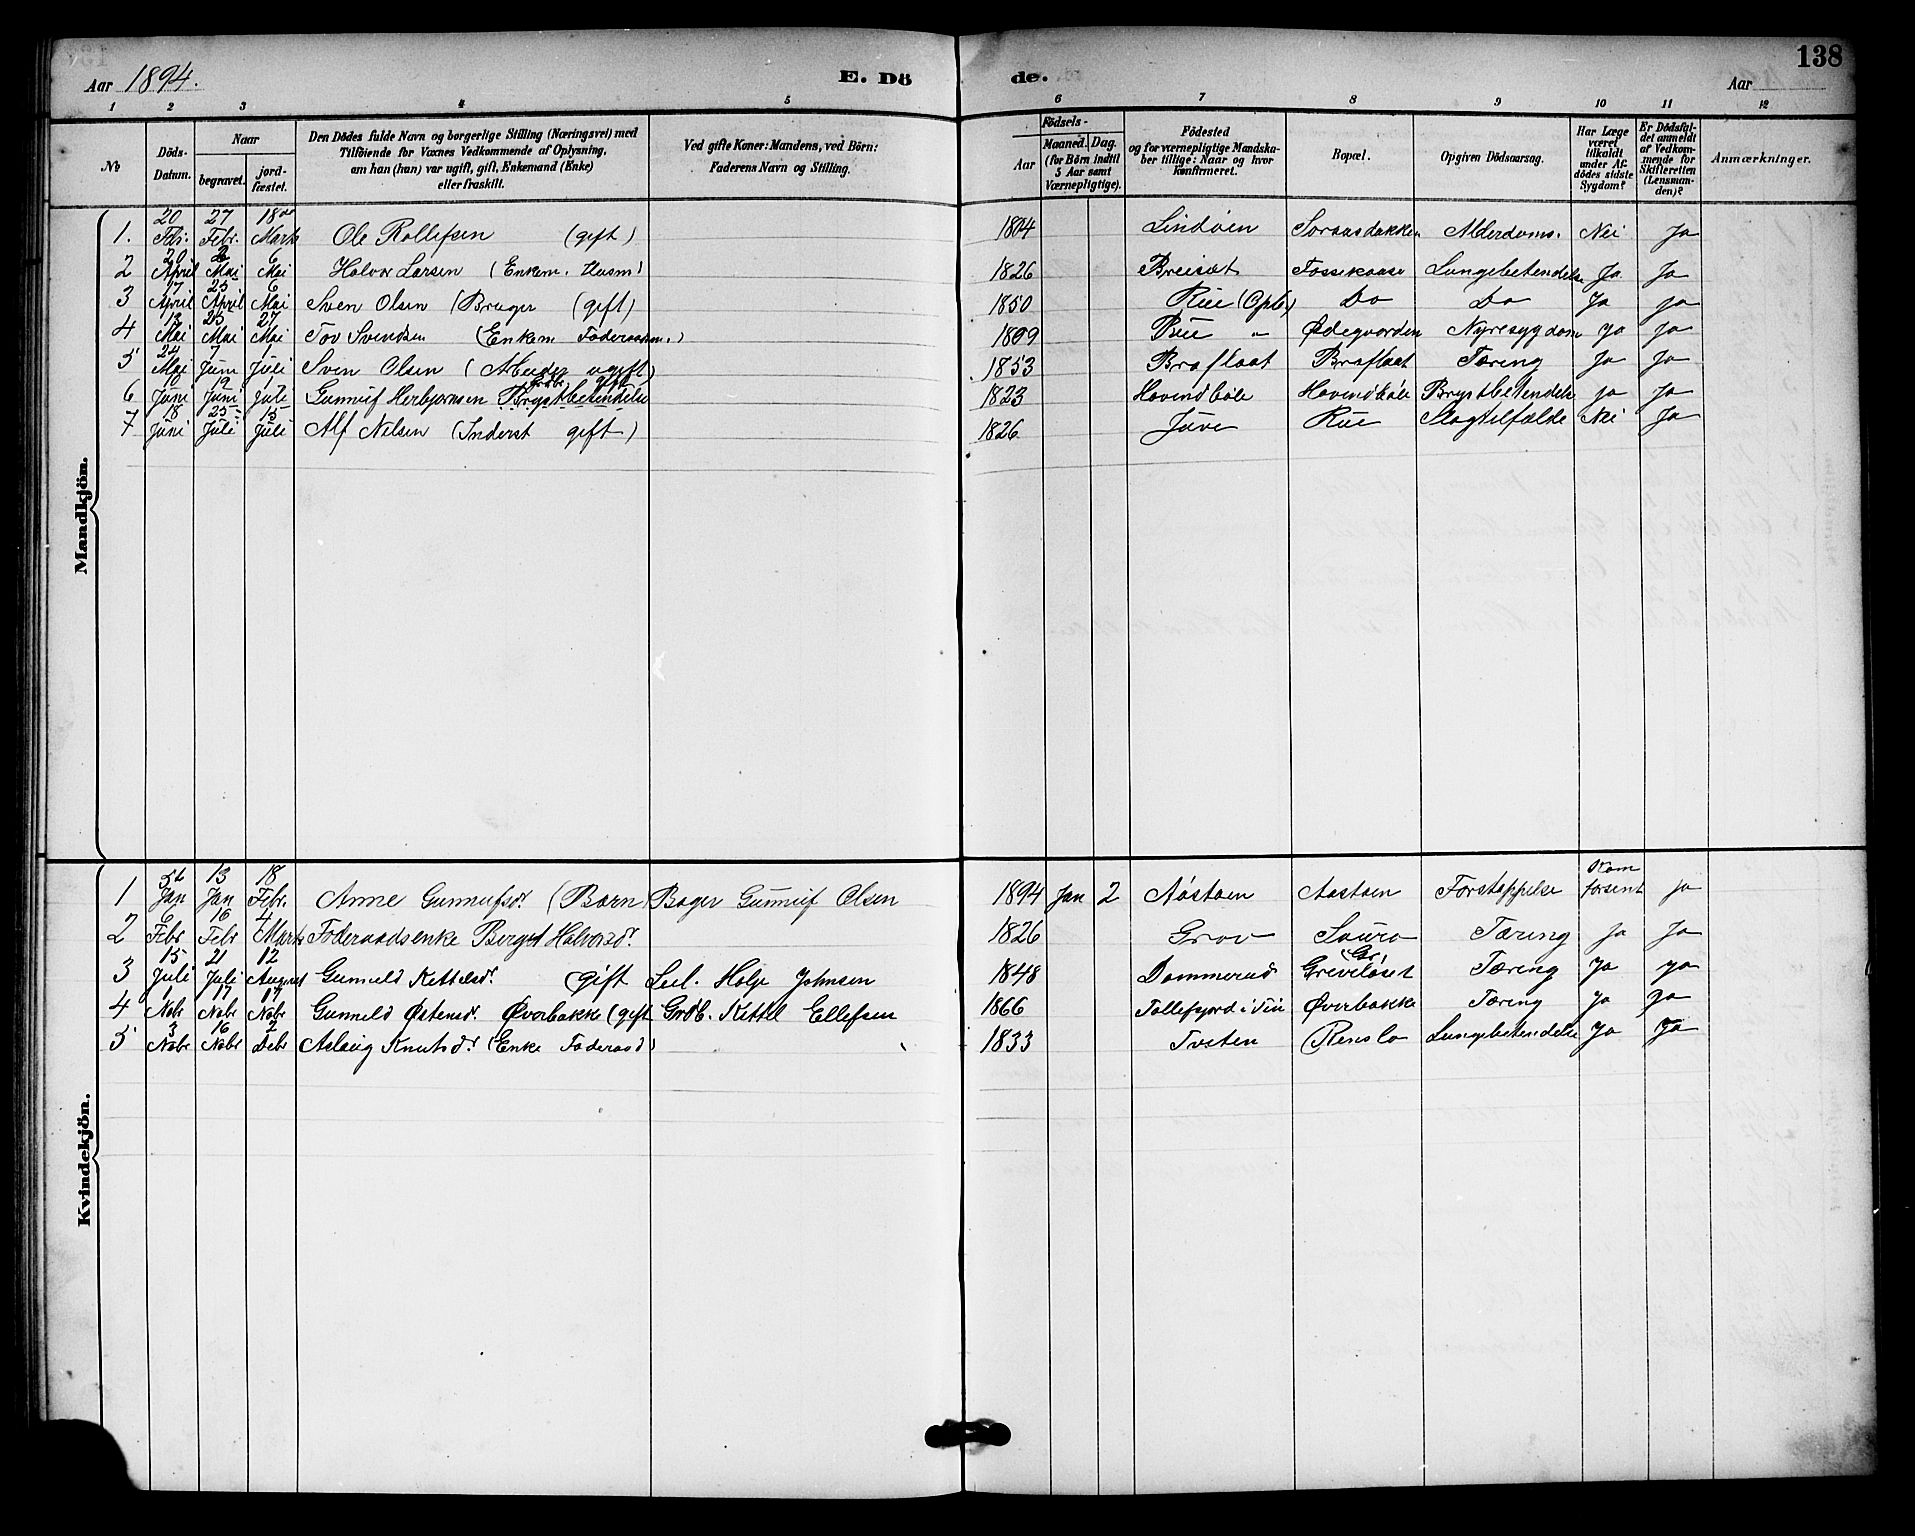 138
Aar 1894.
E. Dö de.
Aar
1 2 3 4 5 6 7 8 9 10 11 12
№ Döds-Datum. Naar begravet. jord-fæstet. Den Dödes fulde Navn og borgerlige Stilling (Næringsvei) med Tilföiende for Voxnes Vedkommende af Oplysning, om han (hun) var ugift, gift, Enkemand (Enke) eller fraskilt. Ved gifte Koner: Mandens, ved Börn: Faderens Navn og Stilling. Födsels- Aar Maaned. Dag. (for Börn indtil 5 Aar samt Værnepligtige). Födested og for værnepligtige Mandska-ber tillige: Naar og hvor konfirmeret. Bopæl. Opgiven Dödsaarsag. Har Læge været tilkaldt under Af-dödes sidste Sygdom? Er Dödsfal-det anmeldt af Vedkom-mende for Skifteretten (Lensman-den)? Anmærkninger.
Mandkjön.
1. 20 Febr. 27 Febr. 18de Marts Ole Rollefsen (gift) 1804 Lindöen Alderdoms. Nei Ja
2 20 April Mai 6 Mai Halvor Larsen (Enkem. Husm) 1826 Breisæt Lungebetendelse Ja Ja
3 17 April 25 April 6 Mai Sven Olsen (Bruger (gift) 1850 Rue (Opb) Do Do Ja ja
4 13 Mai 25 Mai 27 Mai Tov Svendsen (Enkem Föderaadsm.) 1809 Rue " Ødegaarden Nyresygdom ja ja
5 24 Mai 7 Juni 1 Juli Sven Olsen ugift) 1853 Braflaat Braflaat Tæring ja ja
6 10 Juni 19 Juni 1 Juli Gunnuf Herbjørnsen Brystbetendelse Grdbr. gift 1823 Hovindböle Hovindböle Brystbetendelse ja ja
7 18 Juni 25 Juli 15 Juli Alf Nilsen (Inderst gift) 1826 Juve Rue Slagtilfælde Nei Ja
Kvindekjön.
1 5te Jan 13 Jan 18 Febr. Anne Gunnufsdr. (Barn) Bager Gunnuf Olsen 1894 Jan 2 Aastoen Aastoen Forstoppelse Kom forsent ja
2 6 Febr 16 Febr 4 Marts Föderaadsenke Birget Halvorsdr. 1826 Grov Sauro Tæring ja ja
3 15 Juli 21 Juli 12 August Gunnild Kittilsdr. gift Sel. Holje Johnsen 1848 Dommerud Tæring ja ja
4 1 Nobr 17 Nobr 17 Nobr Gunnild Østensdr. Øverbakke (gift Grdb. Kittil Ellefsen 1866 Tollefsjord i Tin Øverbakke Tæring ja ja
5 3 Nobr 16 Nobr 2 Debr Aslaug Knutsdr (Enke Föderaad) 1833 Tveten Lungebetendelse Ja Ja